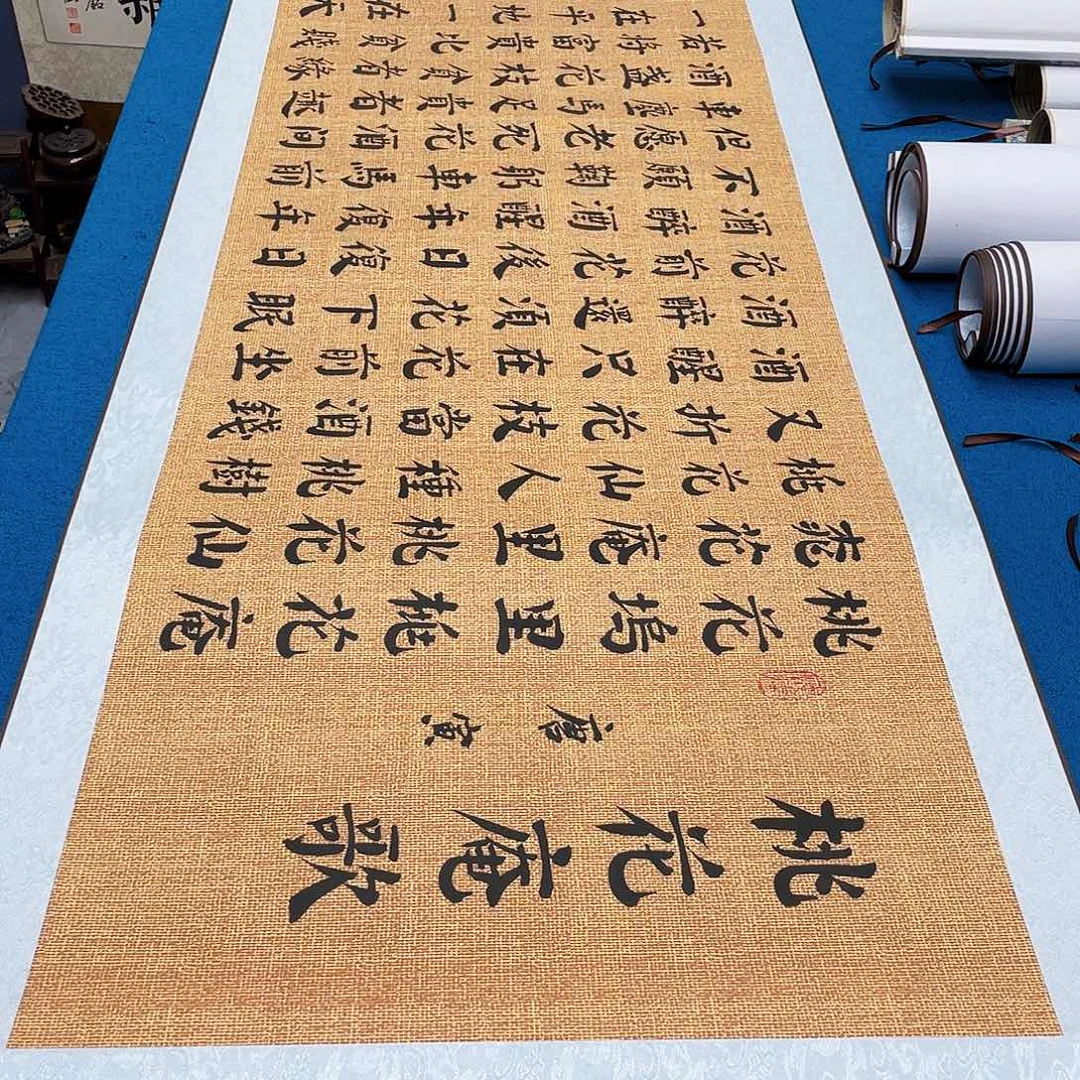 桃花庵歌
唐寅
桃花塢里桃花庵
桃花庵里桃花仙
桃花仙人種桃樹
又折花枝當酒錢
酒醒只在花前坐
酒醉還須花下眠
花前花後日復日
酒醉酒醒年復年
不願鞠躬車馬前
但愿老死花酒間
車塵馬足貴者趣
酒盞花枝貧者緣
若將富貴比貧賤
一在平地一在天